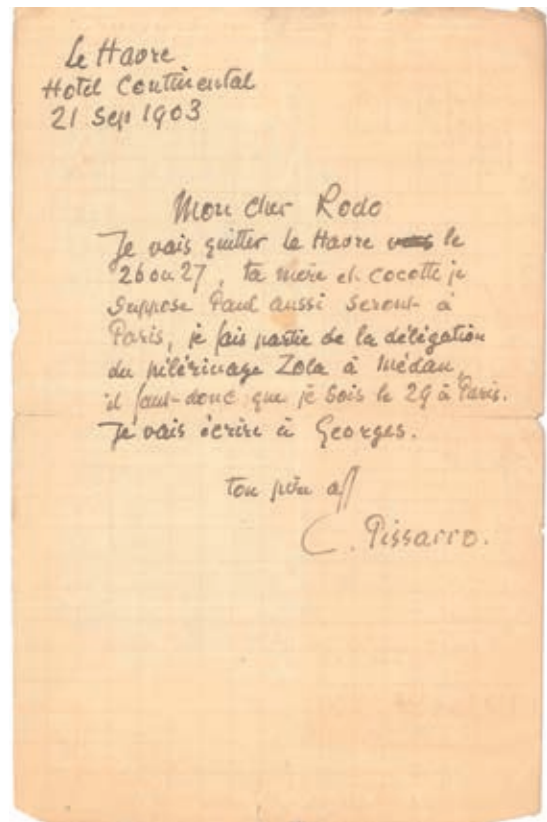 Le Havre
Hotel Continental
21 Sep 1903
Mon cher Rodo
Je vais quitter Le Havre le
26 ou 27, ta mère et cocotte je
suppose Paul aussi seront à
Paris, je fais partie de la délégation
du pélérinage Zola à Médan,
il faut-donc que je sois le 29 à Paris.
Je vais écrire à Georges.
ton père aff
C. Pissarro.